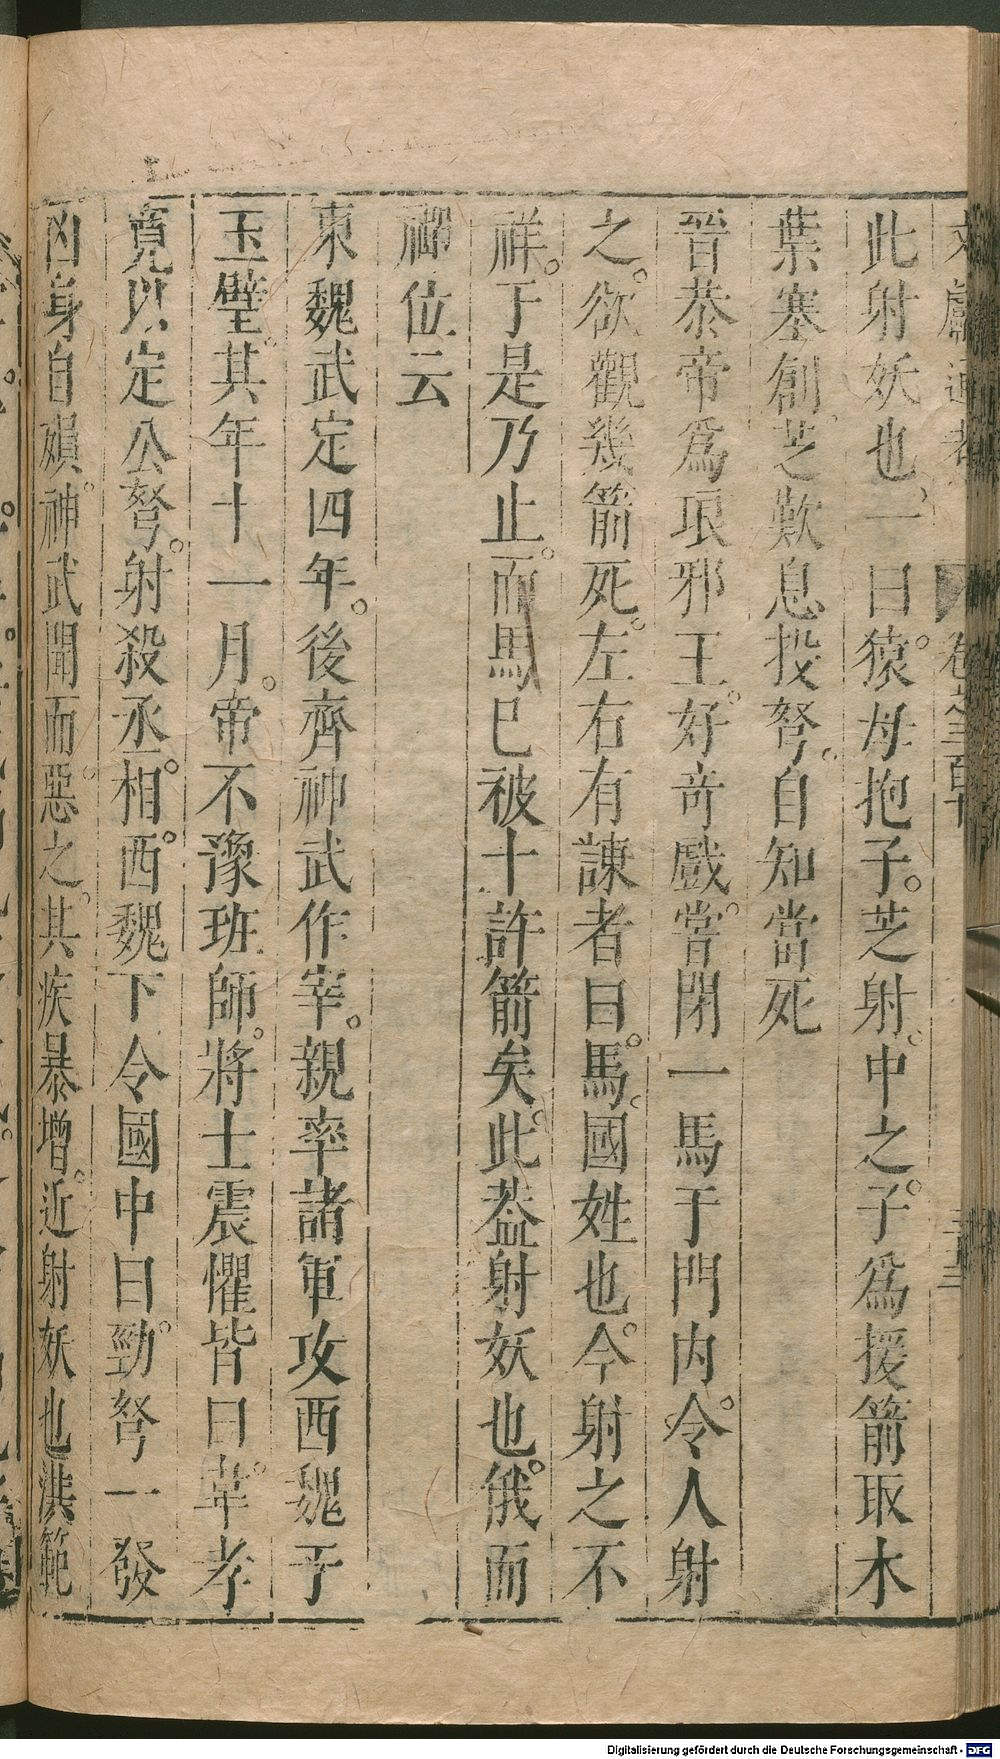 文獻通考 卷之三百
此射妖也一曰猿母抱子芝射中之子爲援箭取木
葉塞創芝歎息投弩自知當死
晉恭帝爲琅邪王好奇戲嘗閉一馬于門内令人射
之欲觀幾箭死左右有諫者曰馬國姓也今射之不
祥于是乃止而馬已被十許箭矣此葢射妖也俄而
禪位云
東魏武定四年後齊神武作宰親率諸軍攻西魏于
玉璧其年十一月帝不豫班師將士震懼皆曰韋孝
寛以定公弩射殺丞相西魏下令國中曰勁弩一發
凶身自殞神武聞而惡之其疾暴增近射妖也洪範
Digitalisierung gefördert durch die Deutsche Forschungsgemeinschaft - DFG